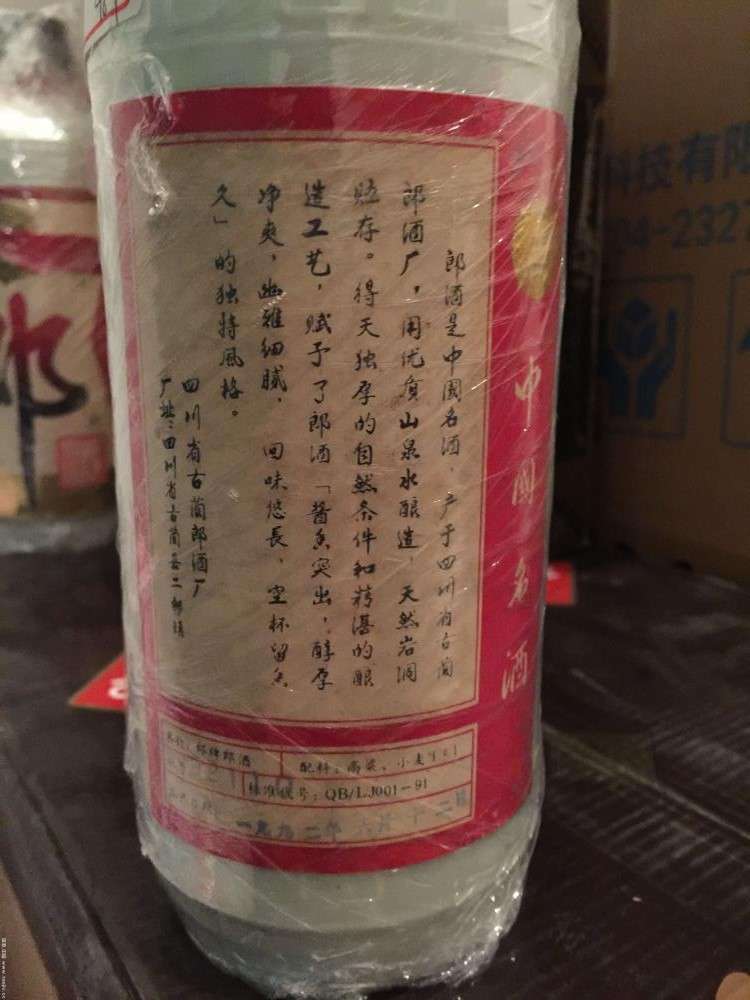 郎酒是中国名酒，产于四川省古蔺
郎酒厂，用优质山泉水酿造，天然岩洞
贮存。得天独厚的自然条件和精湛的酿
造工艺，赋予了郎酒「酱香突出，醇厚
净爽，幽雅细腻，回味悠長，空杯留香
久」的独特風格。
四川省古蔺郎酒厂
厂址：四川省古蔺县二郎镇
中國名酒
郎牌郎酒
配料：高粱、小麦
标准代号：QB/LJ001-91
一九九二年六月十二日
科技有限
94-232
郎